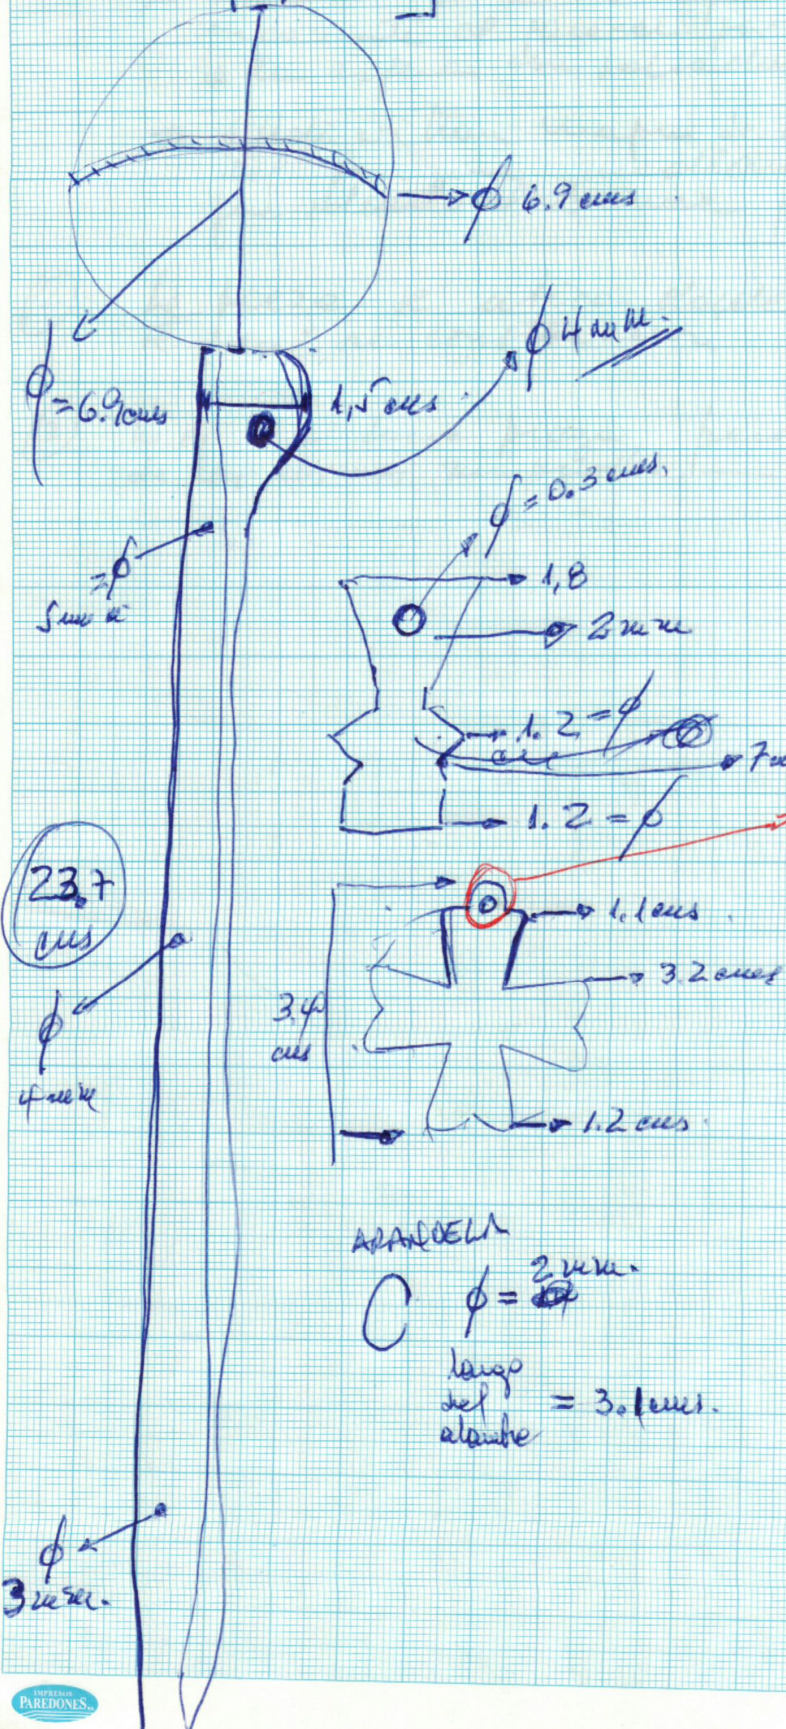 ϕ 6.9 cms
ϕ 4 m.m.
ϕ = 6.9 cms
1,5 cms
ϕ = 0.3 cms.
= ϕ
5 mm
1,8
2 mm
1.2 = ϕ
1.2 = ϕ
23.7
cms
1.1 cms
3.2 cms
3.4
cms
ϕ
4 mm
1.2 cms.
ARANDELA
ϕ = 2 mm.
largo
del
alambre
= 3.1 cms.
ϕ
3 mm.
IMPRESOS
PAREDONES